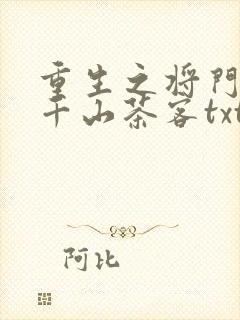 重生之将门
千山茶客txt
阿比